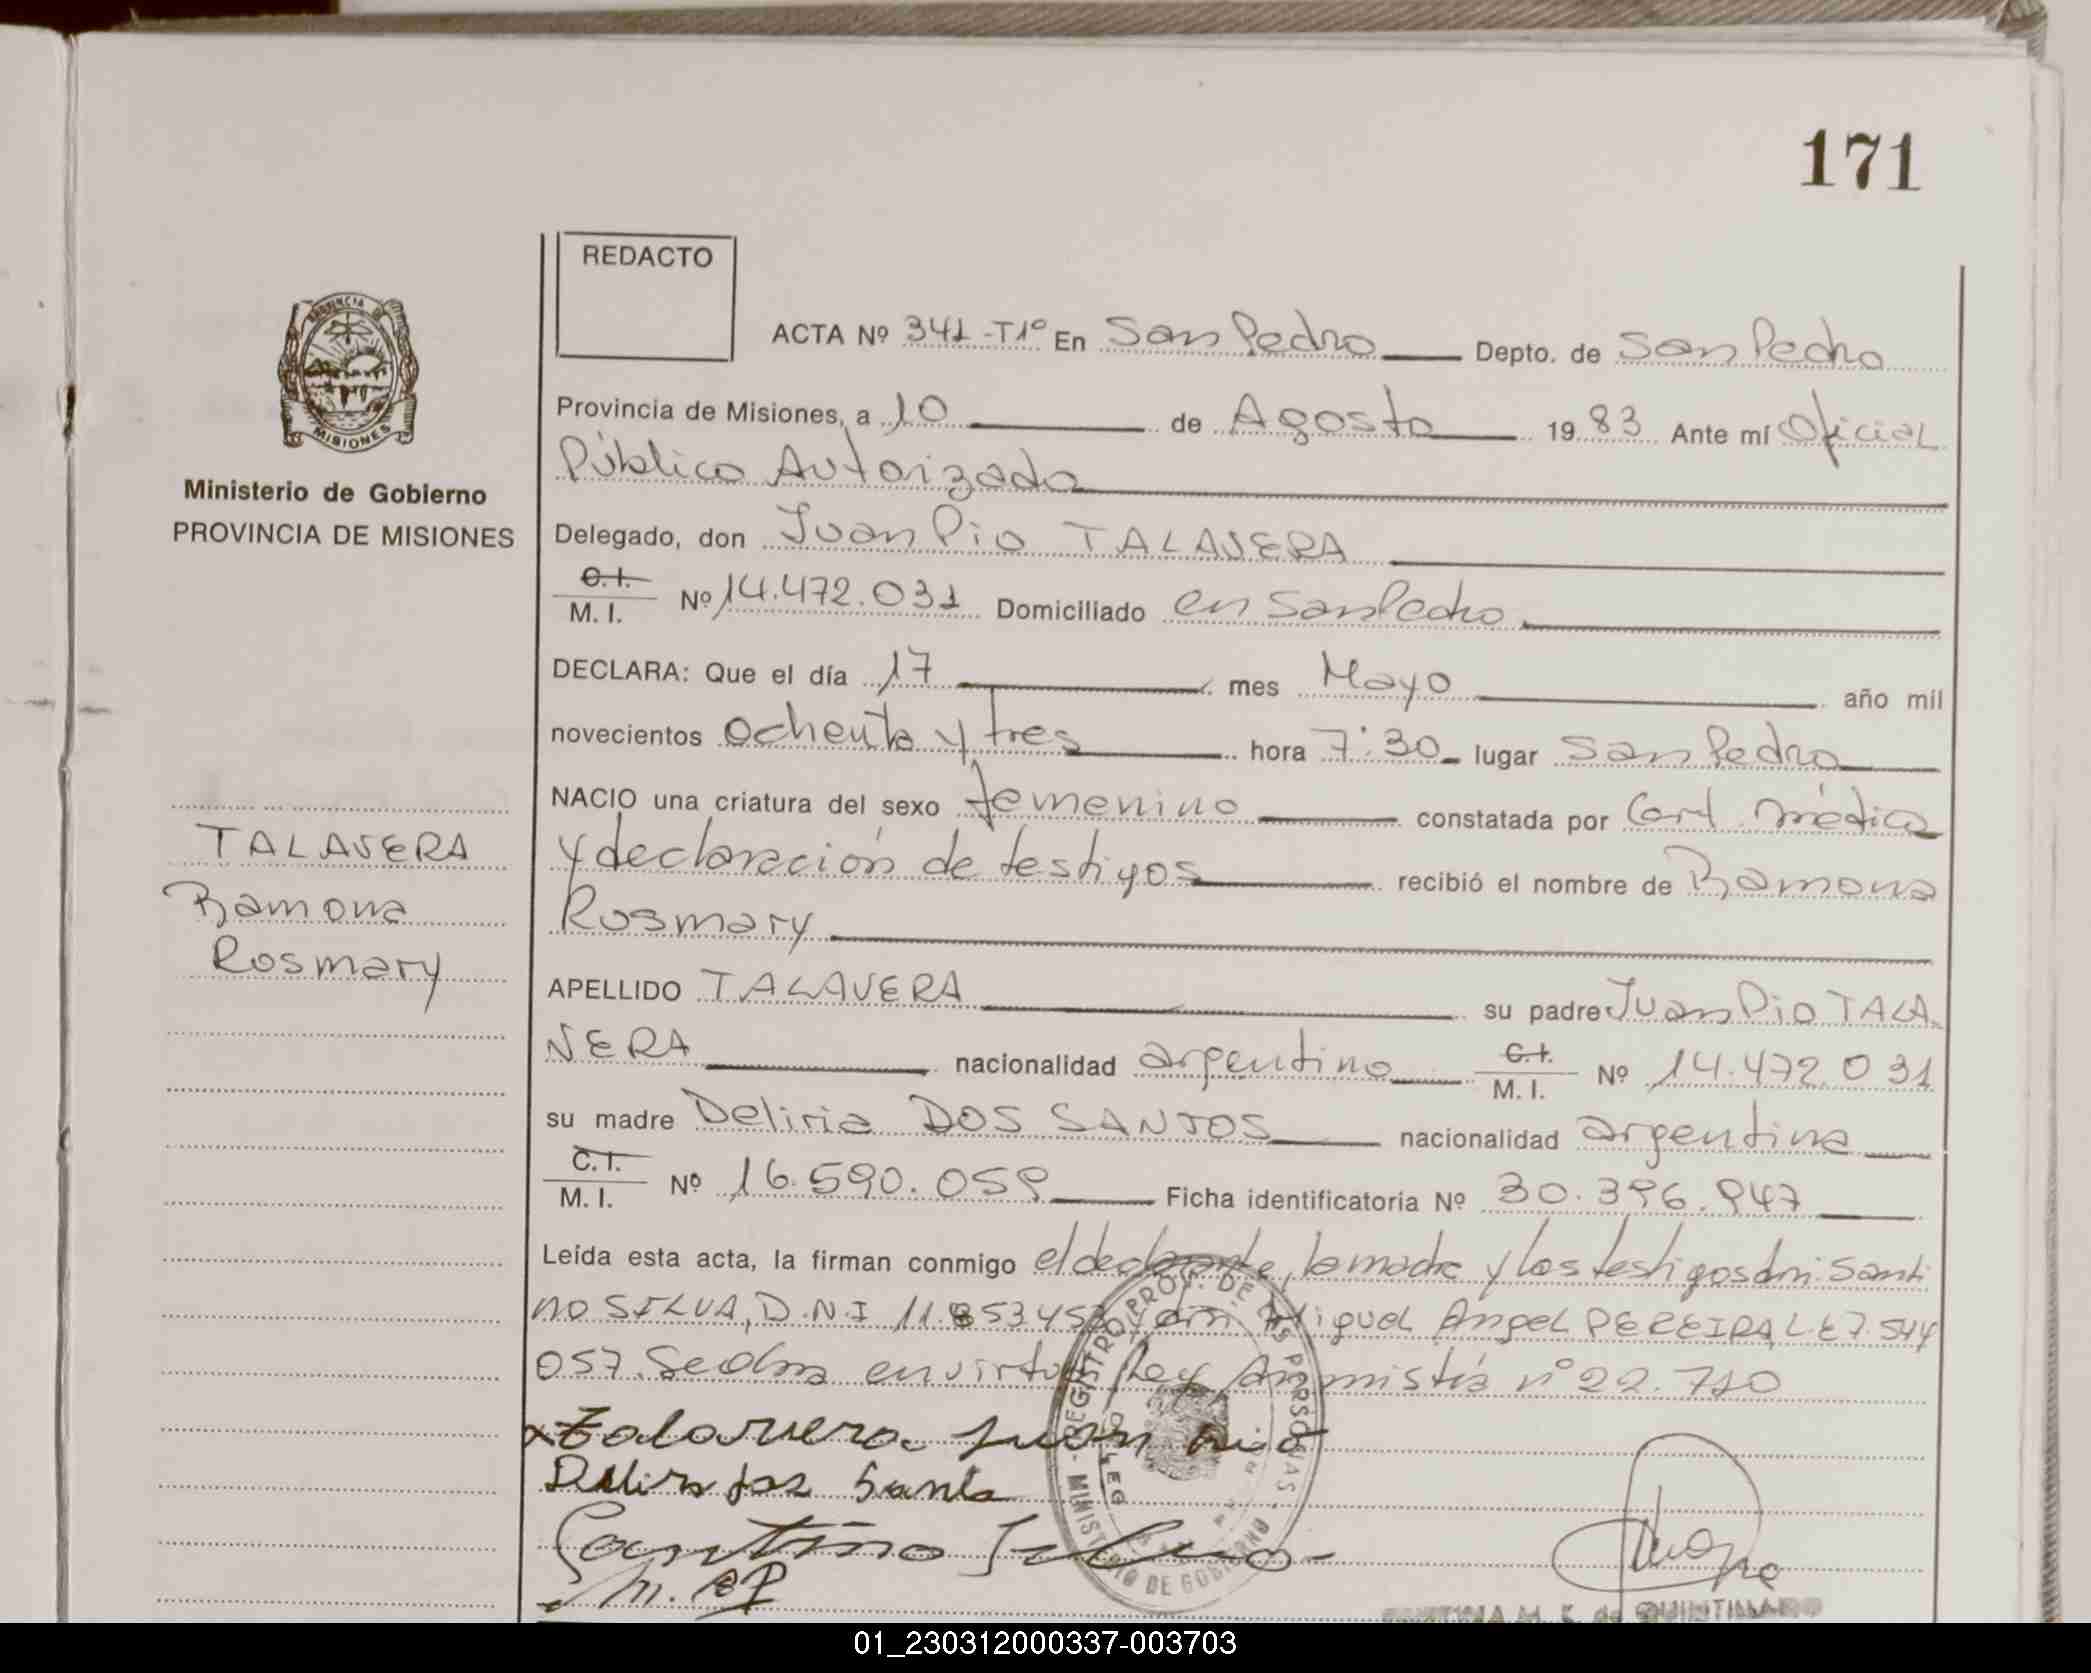 171
REDACTO
ACTA Nº 341-T1º En San Pedro Depto. de San Pedro
Provincia de Misiones, a 10 de Agosto 1983 Ante mí Oficial
Público Autorizado
Delegado, don Juan Pio TALAVERA
C.I.
M. I. Nº 14.472.031 Domiciliado en San Pedro
DECLARA: Que el día 17 mes Mayo año mil
novecientos ochenta y tres hora 7:30 lugar San Pedro
NACIO una criatura del sexo femenino constatada por Cert médico
y declaración de testigos recibió el nombre de Ramona
Rosmary
APELLIDO TALAVERA su padre Juan Pio TALA
VERA nacionalidad argentino C.I. M. I. Nº 14.472.031
su madre Deliria DOS SANTOS nacionalidad argentina
C.I.
M. I. Nº 16.590.059 Ficha identificatoria Nº 30.396.947
Leída esta acta, la firman conmigo el declarante, la madre y los testigos don: Santi
no SILVA, D.N.I 11.853.458 y don: Miguel Angel PEREIRA, L.E 7.544
057. Se labra en virtud Ley Amnistía nº 22.710
Talavera Juan Pio
Delira dos Santo
Santino Silva
PROVINCIA DE
MISIONES
Ministerio de Gobierno
PROVINCIA DE MISIONES
TALAVERA
Ramona
Rosmary
REGISTRO PROV. DE LAS PERSONAS
MINISTERIO DE GOBIERNO
DELEG
de QUINTILLANO
01_230312000337-003703